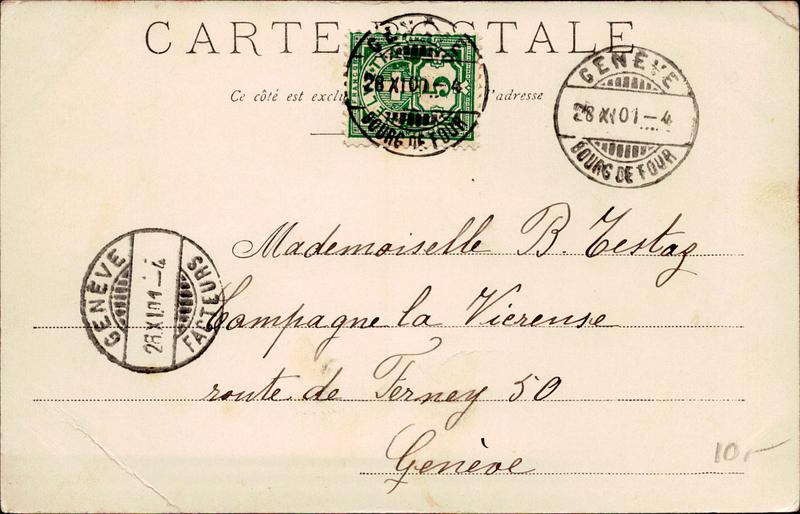 CARTE POSTALE
Ce côté est exclu l'adresse
GENÈVE
28 XI 01 - 4
BOURG DE FOUR
FRANCO
5
GENÈVE
28 XI 01 - 4
BOURG DE FOUR
Mademoiselle B. Testaz
GENÈVE
28 XI 01 - 4
FACTEURS
Campagne la Vicreuse
route de Ferney 50
Genève
10.-